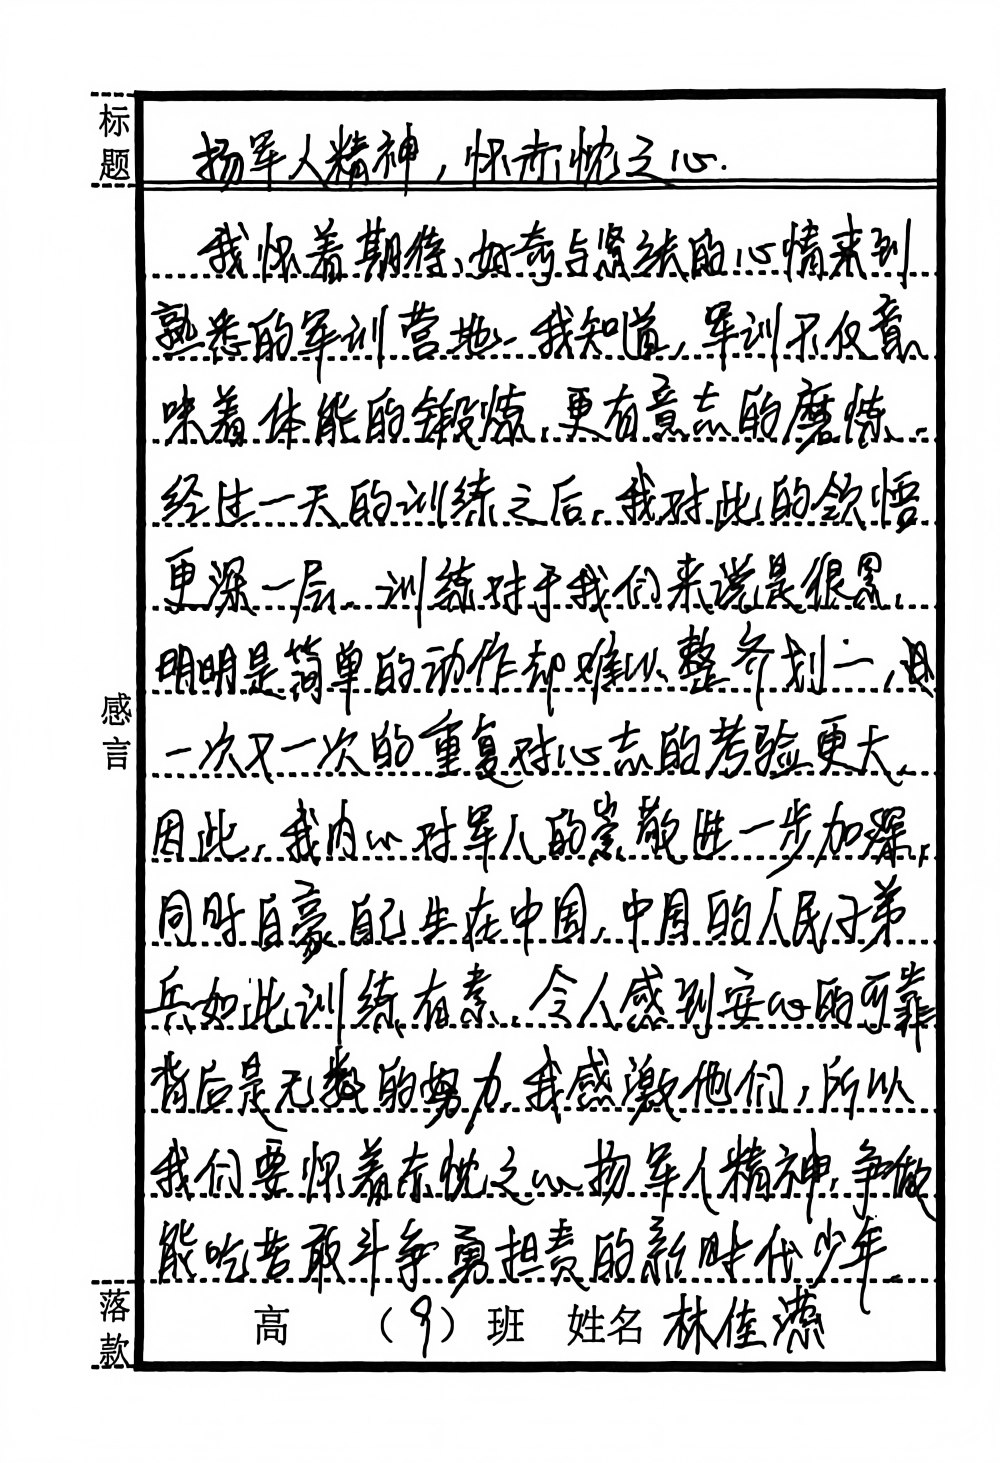 标题
扬军人精神，怀赤忱之心.
我怀着期待、好奇与紧张的心情来到
熟悉的军训营地。我知道，军训不仅意
味着体能的锻炼，更有意志的磨炼。
经过一天的训练之后，我对此的领悟
更深一层。训练对于我们来说是很累，
明明是简单的动作却难以整齐划一，且
感言
一次又一次的重复对心志的考验更大。
因此，我内心对军人的崇敬进一步加深，
同时自豪自己生在中国，中国的人民子弟
兵如此训练有素，令人感到安心的可靠
背后是无数的努力。我感激他们，所以
我们要怀着赤忱之心扬军人精神，争做
能吃苦敢斗争勇担责的新时代少年。
落款
高 （9）班 姓名 林佳